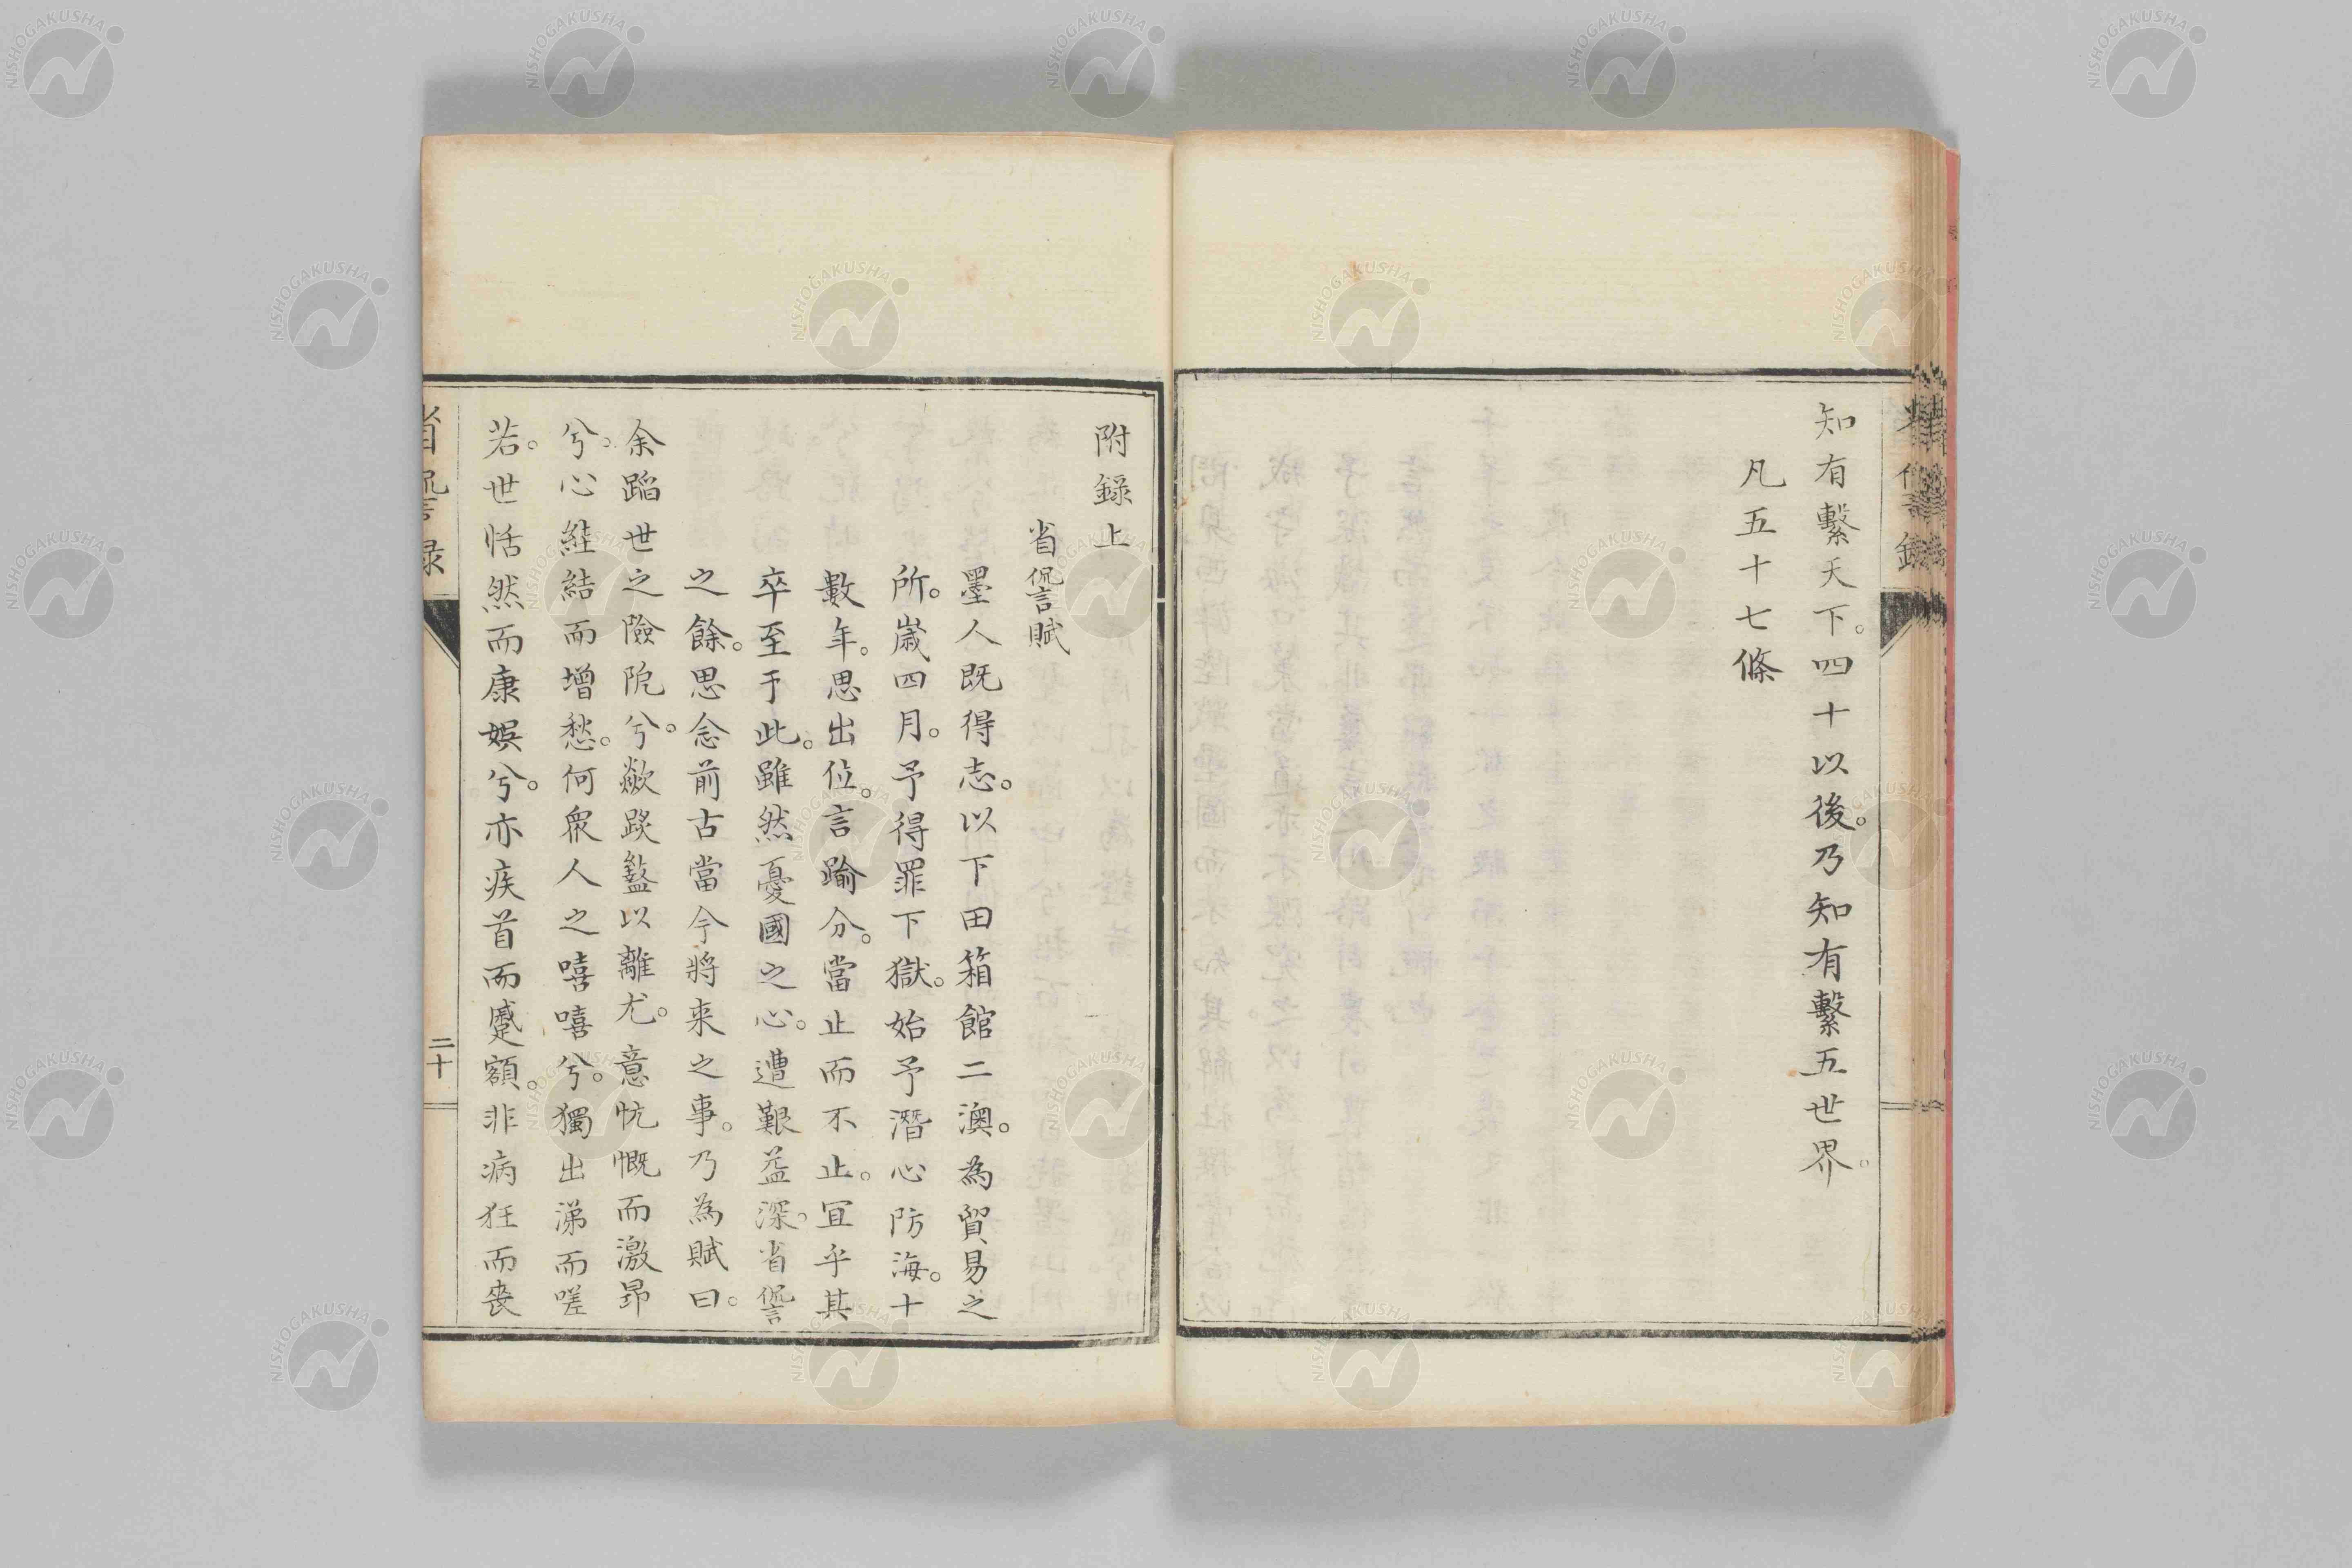 知有繫天下。四十以後。乃知有繫五世界。
凡五十七條
附錄上
省諐賦
墨人既得志。以下田箱館二澳。為貿易之
所。歲四月。予得罪下獄。始予潛心防海。十
數年。思出位。言踰分。當止而不止。宜乎其
卒至于此。雖然憂國之心。遭艱益深。省諐
之餘。思念前古當今將来之事。乃為賦曰。
余蹈世之險阨兮。歘跌盭以離尤。意忼慨而激昂
兮。心絓結而增愁。何眾人之嘻嘻兮。獨出涕而嗟
若。世恬然而康娛兮。亦疾首而蹙額。非病狂而喪
省諐录
二十
NISHOGAKUSHA